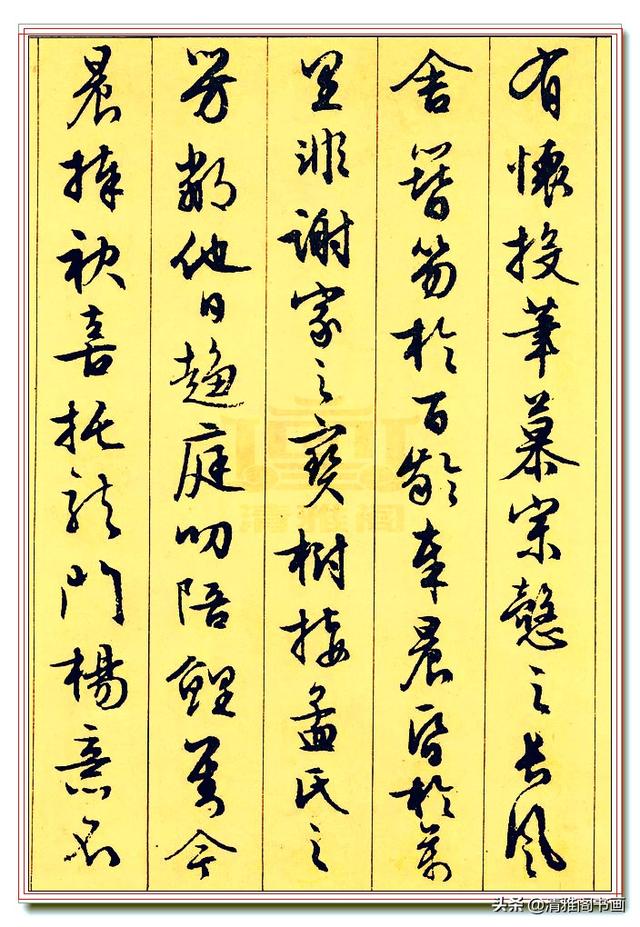 有懷投筆慕宗愨之長風
舍簪笏於百齡奉晨昏於萬
里非謝家之寶樹接孟氏之
芳鄰他日趨庭叨陪鯉對今
晨捧袂喜托龍門楊意不
清雅阁
头条 @清雅阁书画